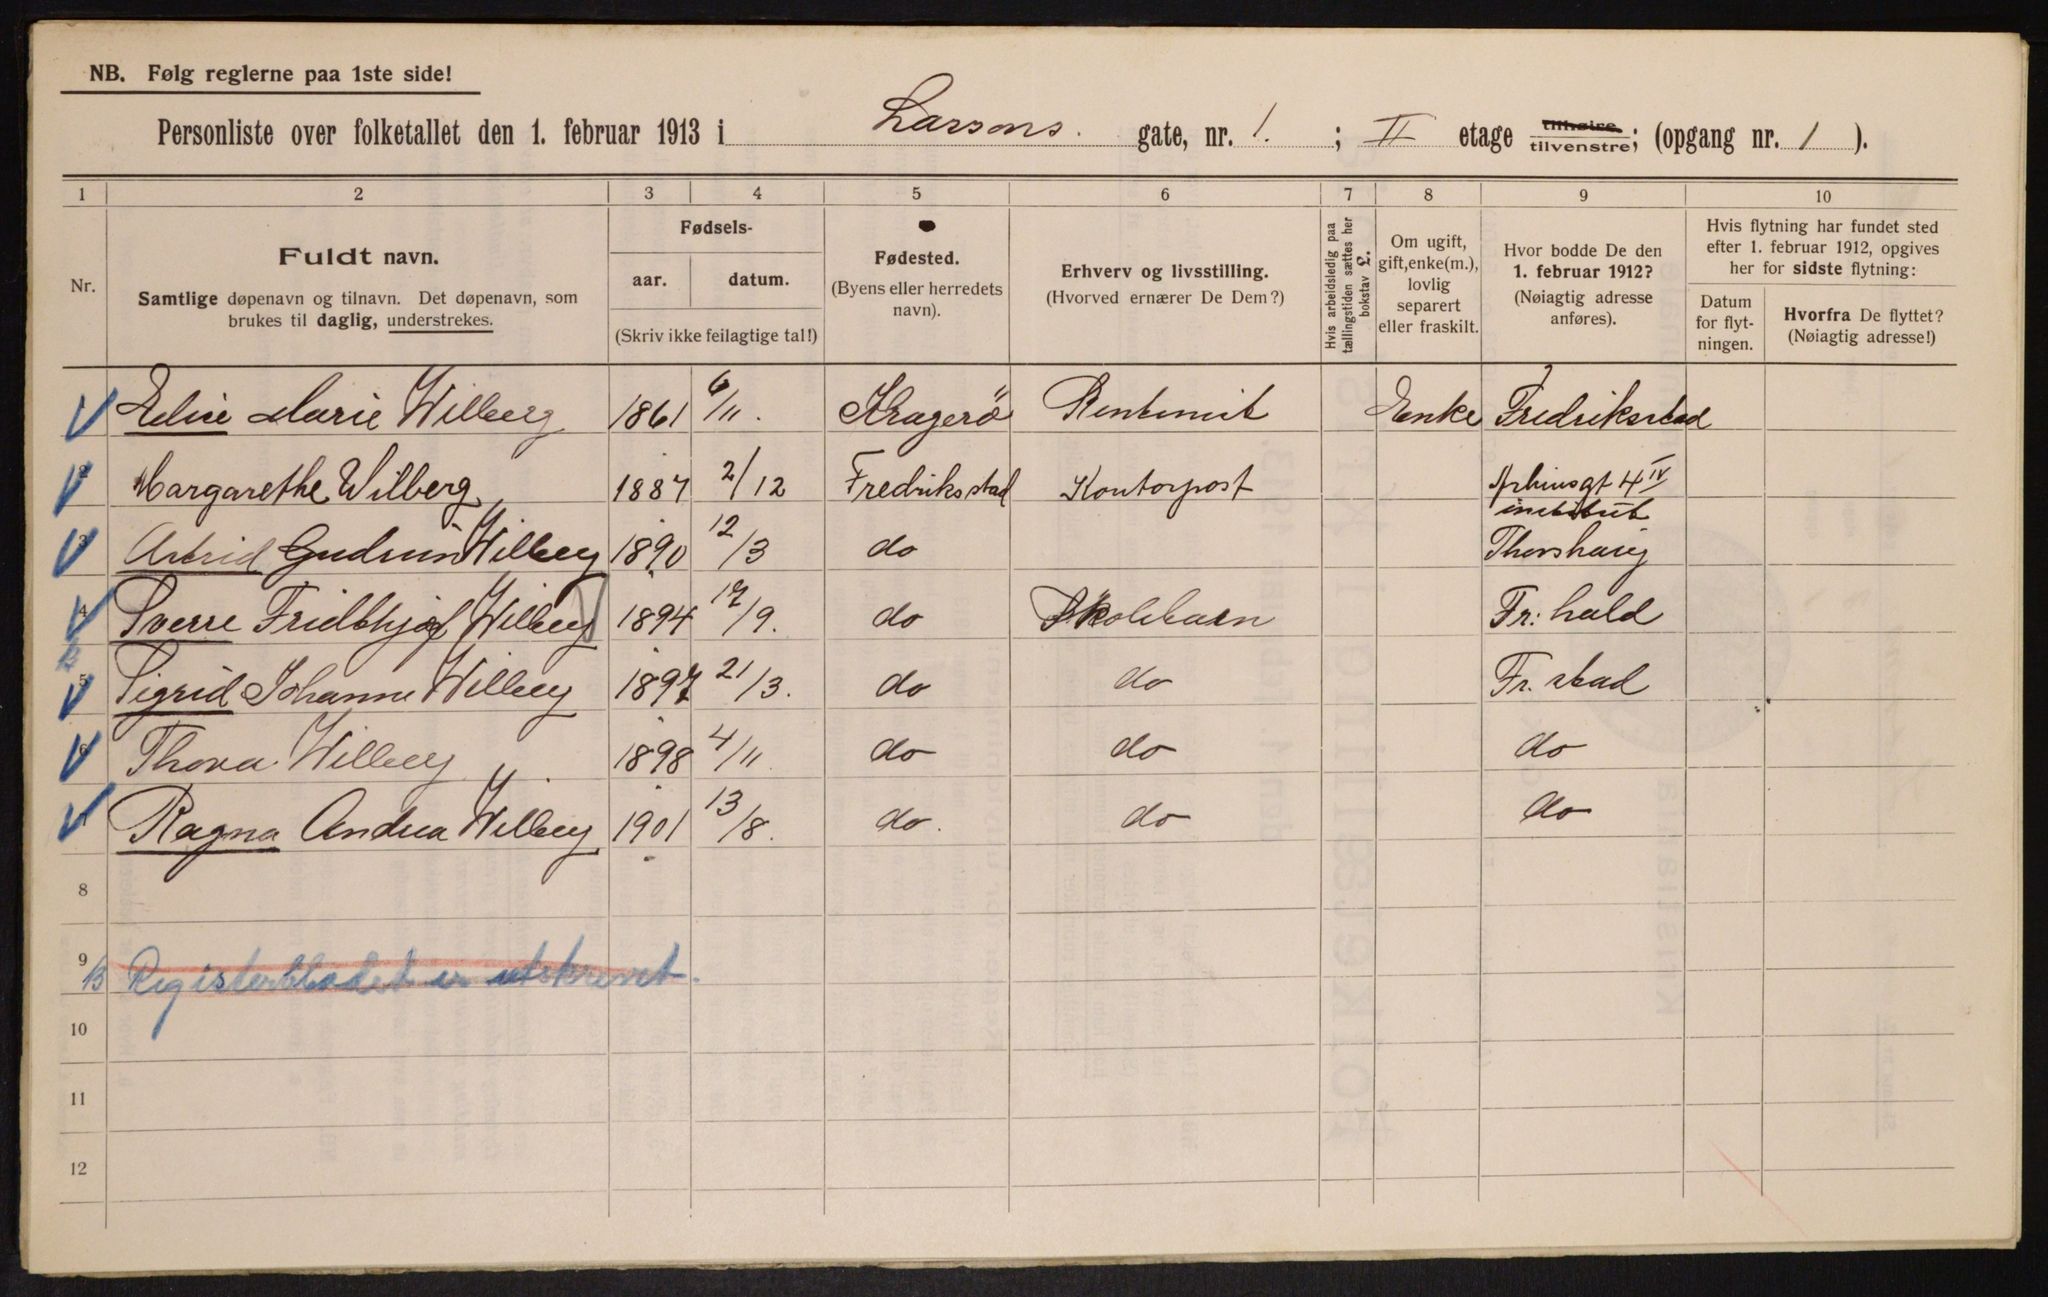 NB. Følg reglerne paa 1ste side!
Personliste over folketallet den 1. februar 1913 i Larsons gate, nr. 1. ; II etage tilhøire tilvenstre; (opgang nr. 1 ).
1 2 3 4 5 6 7 8 9 10
Nr.
Fuldt navn.
Samtlige døpenavn og tilnavn. Det døpenavn, som
brukes til daglig, understrekes.
Fødsels-
aar. datum.
(Skriv ikke feilagtige tal!)
Fødested.
(Byens eller herredets
navn).
Erhverv og livsstilling.
(Hvorved ernærer De Dem?)
Hvis arbeidsledig paa
tællingstiden sættes her
bokstav L.
Om ugift,
gift, enke(m.),
lovlig
separert
eller fraskilt.
Hvor bodde De den
1. februar 1912?
(Nøiagtig adresse
anføres).
Hvis flytning har fundet sted
efter 1. februar 1912, opgives
her for sidste flytning:
Datum
for flyt-
ningen.
Hvorfra De flyttet?
(Nøiagtig adresse!)
1 Elise Marie Wilberg 1861 6/11. Kragerö Rentenist Enke Fredriksstad
2 Margarethe Wilberg 1887 2/12 Fredriksstad Kontorpost gt 4 IV
institut
3 Astrid Gudrun Wilberg 1890 12/3 do Thorshaug
4 Sverre Fridthjof Wilberg 1894 17/9. do Skolebarn Fr: hald
5 Sigrid Johanne Wilberg 1897 21/3. do do Fr. stad
6 Thora Wilberg 1898 4/11. do do do
7 Ragna Andrea Wilberg 1901 13/8. do. do do
8
9
B Registerbladet er utskrevet.
10
11
12